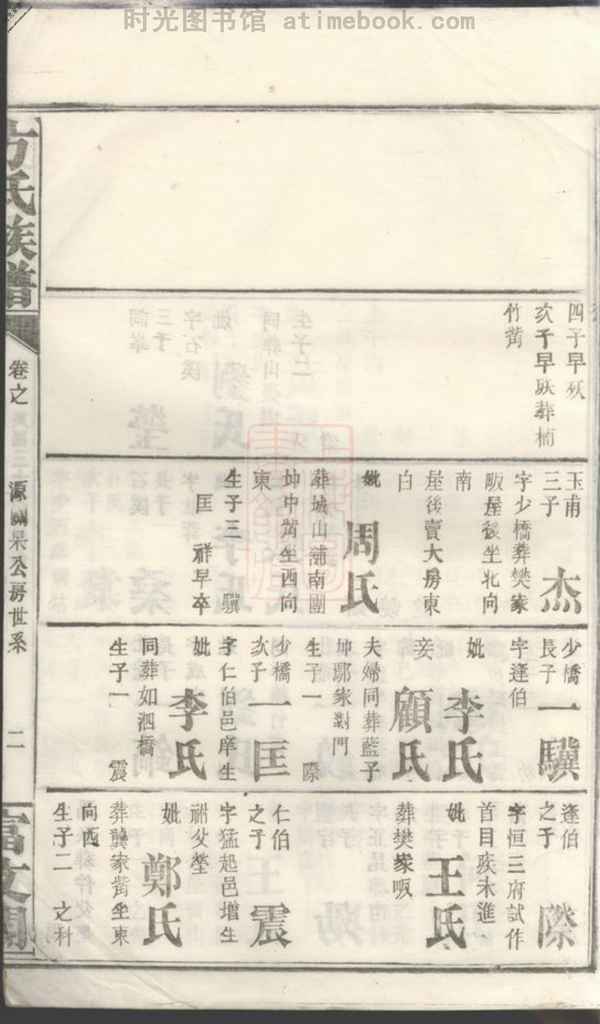 时光图书馆 www.atimebook.com
方氏族譜
卷之
源國杲公房世系
二
富文閣
四子早殀
次子早殀葬楠
竹薝
玉甫
三子
杰
字少橋葬樊家
畈屋後坐北向
南
屋後賣大房東
白
妣周氏
葬城山蒲南團
坤中薝坐西向
東
生子三 驥
匡 祥早卒
少橋
長子
一驥
字逢伯
妣李氏
妾顧氏
夫婦同葬藍子
坤鄢家對門
生子一 際
少橋
次子
一匡
字仁伯邑庠生
妣李氏
同葬如泗橋
生子一 震
逢伯
之子
際
字恒三府試作
首目疾未進
妣王氏
葬樊家畈
仁伯
之子
震
字猛起邑增生
祔父塋
妣鄭氏
葬龔家薝坐東
向西
生子二 之科